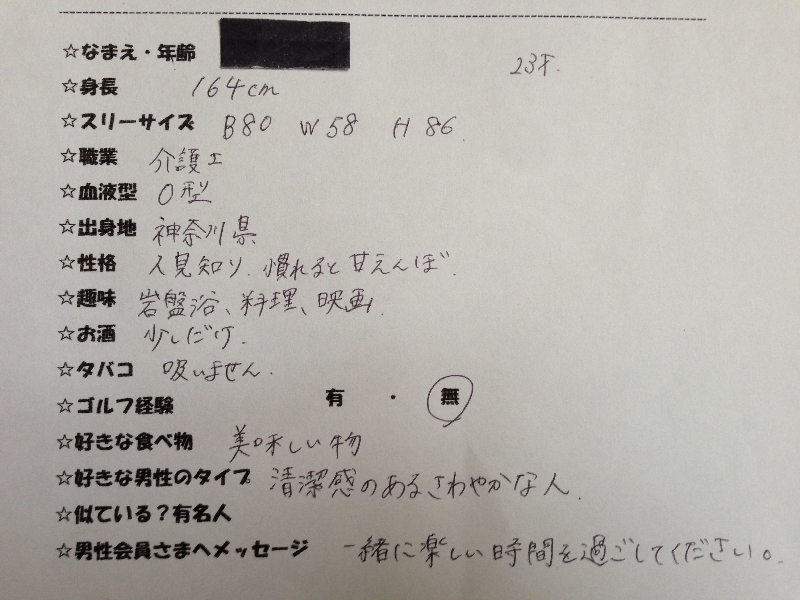 ☆なまえ・年齢 23才.
☆身長 164cm
☆スリーサイズ B80 W58 H86.
☆職業 介護士
☆血液型 O型
☆出身地 神奈川県
☆性格 人見知り、慣れると甘えんぼ.
☆趣味 岩盤浴、料理、映画.
☆お酒 少しだけ.
☆タバコ 吸いません.
☆ゴルフ経験 有 ・ 無
☆好きな食べ物 美味しい物
☆好きな男性のタイプ 清潔感のあるさわやかな人.
☆似ている？有名人
☆男性会員さまへメッセージ 一緒に楽しい時間を過ごしてください。